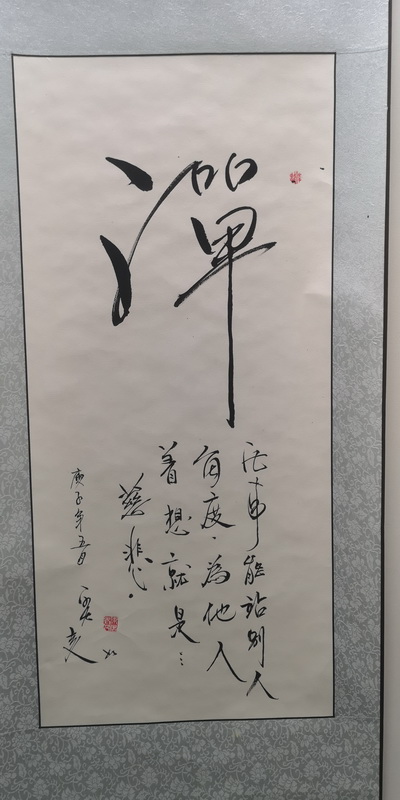 禪
凡事能站別人
角度，為他人
着想就是…
慈悲。
庚子年五月